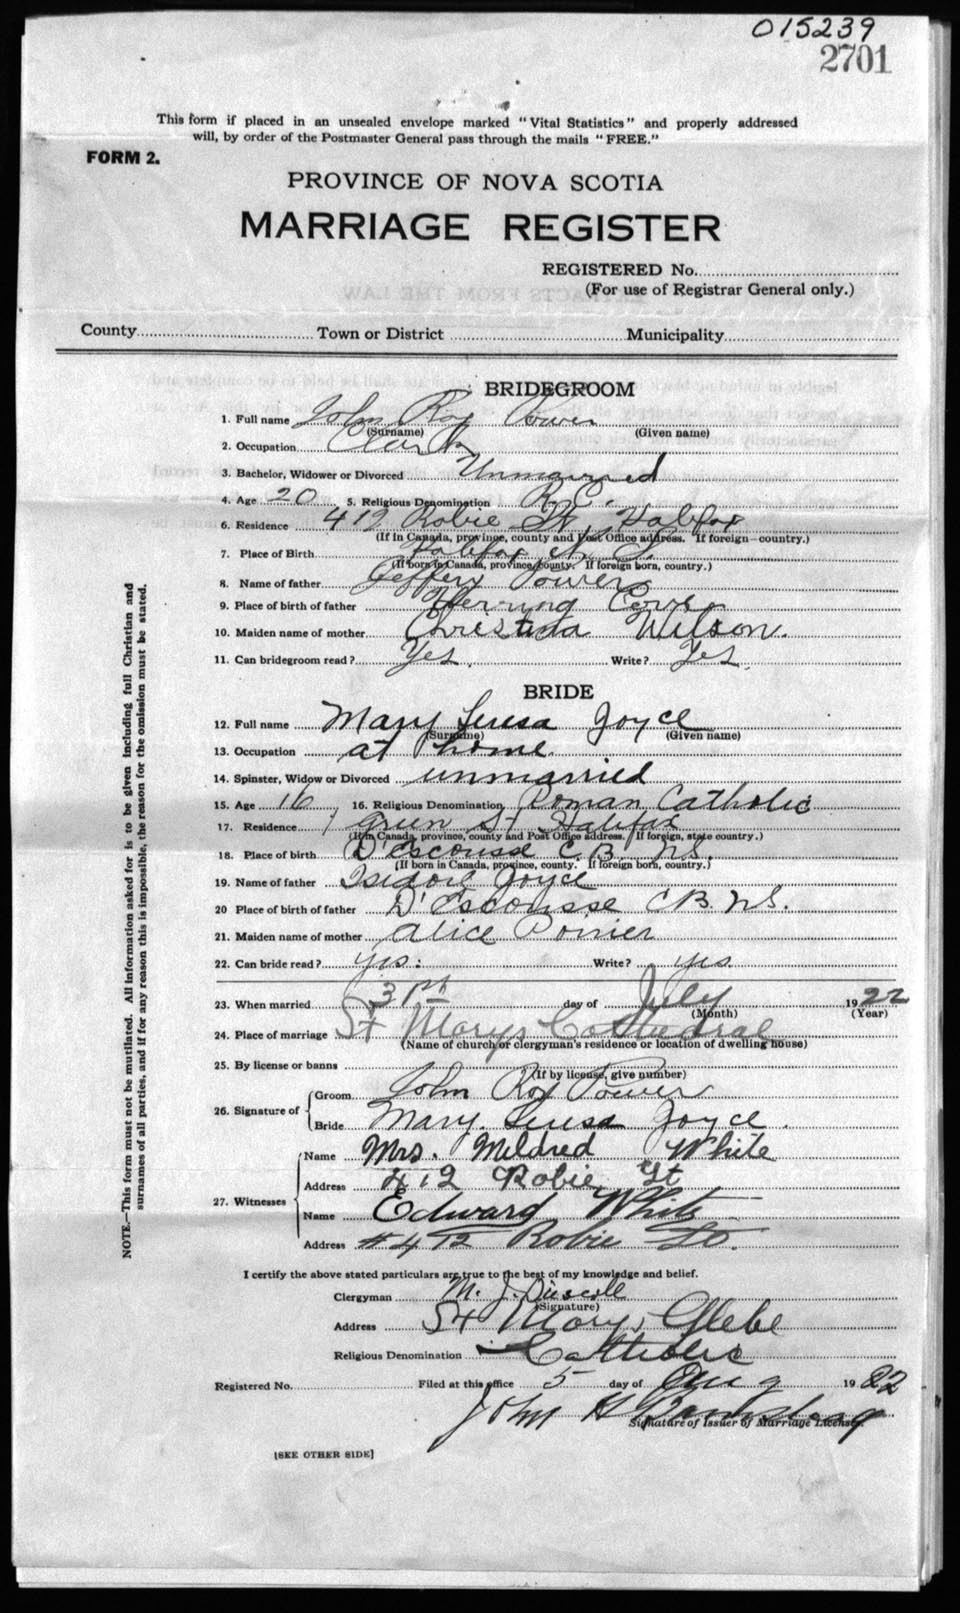 015239
2701
This form if placed in an unsealed envelope marked "Vital Statistics" and properly addressed
will, by order of the Postmaster General pass through the mails "FREE."
FORM 2.
PROVINCE OF NOVA SCOTIA
MARRIAGE REGISTER
REGISTERED No.
(For use of Registrar General only.)
County Town or District Municipality
BRIDEGROOM
1. Full name John Roy Power
(Surname) (Given name)
2. Occupation Clerk
3. Bachelor, Widower or Divorced Unmarried
4. Age 20 5. Religious Denomination R.C.
6. Residence 412 Robie St, Halifax
(If in Canada, province, county and Post Office address. If foreign—country.)
7. Place of Birth Halifax N.S.
(If born in Canada, province, county. If foreign born, country.)
8. Name of father Jeffery Power
9. Place of birth of father Herring Cove
10. Maiden name of mother Christina Wilson.
11. Can bridegroom read? Yes. Write? Yes.
BRIDE
12. Full name Mary Teresa Joyce
(Surname) (Given name)
13. Occupation at home.
14. Spinster, Widow or Divorced unmarried
15. Age 16 16. Religious Denomination Roman Catholic
17. Residence 1 Green St Halifax
(If in Canada, province, county and Post Office address. If foreign, state country.)
18. Place of birth D'Escousse C.B. N.S.
(If born in Canada, province, county. If foreign born, country.)
19. Name of father Isidore Joyce
20 Place of birth of father D'Escousse C B. N.S.
21. Maiden name of mother Alice Poirier
22. Can bride read? yes. Write? yes.
23. When married 31st day of July 1922
(Month) (Year)
24. Place of marriage St Marys Cathedral
(Name of church or clergyman's residence or location of dwelling house)
25. By license or banns
(If by license, give number)
26. Signature of Groom John Roy Power
Bride Mary. Teresa Joyce.
27. Witnesses Name Mrs. Mildred White
Address 412 Robie St
Name Edward White
Address #412 Robie St.
I certify the above stated particulars are true to the best of my knowledge and belief.
Clergyman M. J. Driscoll
(Signature)
Address St Marys Glebe
Religious Denomination Catholic
Registered No. Filed at this office 5 day of Aug 1922
John H
Signature of Issuer of Marriage Licenses.
[SEE OTHER SIDE]
NOTE.—This form must not be mutilated. All information asked for is to be given including full Christian and
surnames of all parties, and if for any reason this is impossible, the reason for the omission must be stated.